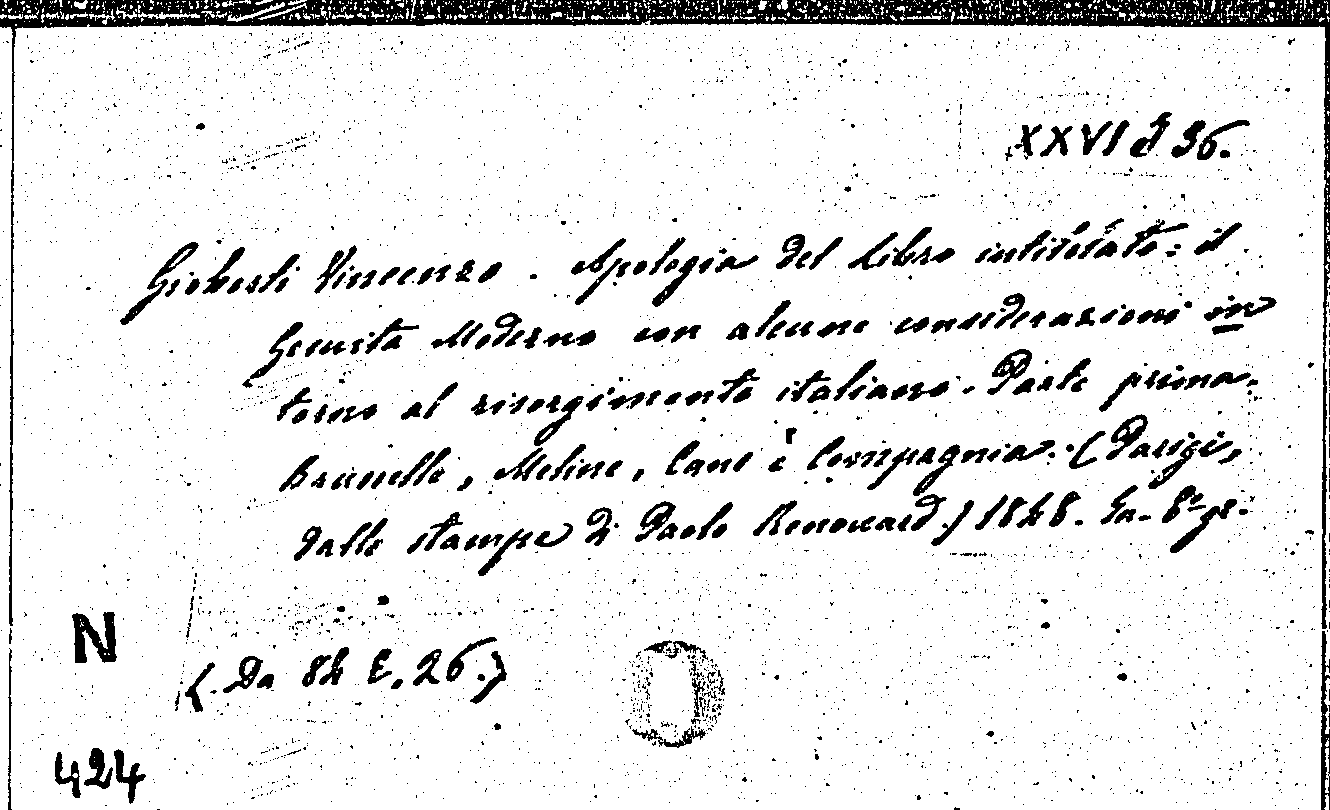 XXVI d 36.
Gioberti Vincenzo. Apologia del Libro intitolato: il
Gesuita Moderno con alcune considerazioni in
torno al risorgimento italiano. Parte prima.
Brusselle, Meline, Cans e Compagnia. (Parigi,
dalle stampe di Paolo Renouard.) 1848. In-8° gr.
N
(Da 84 E. 26.)
424